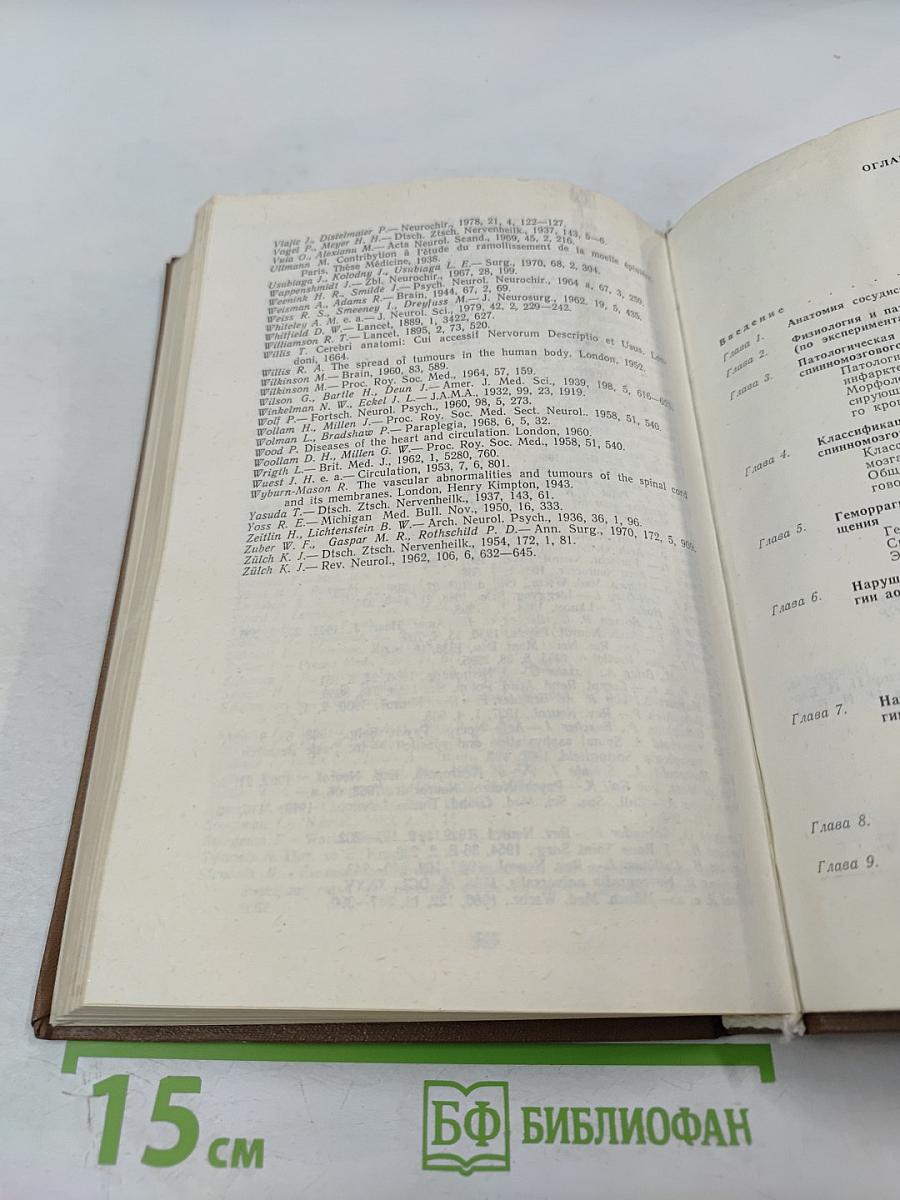 Vlajic J., Distelmaier P.— Neurochir., 1978, 21, 4, 122—127.
Vogel P., Meyer H. H.— Dtsch. Ztsch. Nervenheilk., 1937, 143, 5—6.
Vuia O., Alexianu M.— Acta Neurol. Scand., 1969, 45, 2, 216.
Ullmann M. Contribytion à l'étude du ramollissement de la moelle épinière.
Paris, Thèse Médicine, 1938.
Usubiaga J., Kolodny J., Usubiaga L. E.— Surg., 1970, 68, 2, 304.
Wappenshmidt J.— Zbl. Neurochir., 1967, 28, 199.
Weenink H. R., Smilde J.— Psych. Neurol. Neurochir., 1964 a, 67, 3, 250.
Weisman A., Adams R.— Brain, 1944, 67, 2, 69.
Weiss R. S., Smeeney I., Dreyfuss M.— J. Neurosurg., 1962, 19, 5, 435.
Whiteley A. M. e. a.— J. Neurol. Sci., 1979, 42, 2, 229—242.
Whitfield D. W.— Lancet, 1889, 1, 3422, 627.
Williamson R. T.— Lancet, 1895, 2, 73, 520.
Willis T. Cerebri anatomi: Cui accessif Nervorum Descriptio et Usus. Lon-
doni, 1664.
Willis R. A. The spread of tumours in the human body. London, 1952.
Wilkinson M.— Brain, 1960, 83, 589.
Wilkinson M.— Proc. Roy. Soc. Med., 1964, 57, 159.
Wilson G., Bartle H., Deun J.— Amer. J. Med. Sci., 1939, 198, 5, 616—
Winkelman N. W., Eckel J. L.— J.A.M.A., 1932, 99, 23, 1919.
Wolf P.— Fortsch. Neurol. Psych., 1960, 98, 5, 273.
Wollam H., Millen J.— Proc. Roy. Soc. Med. Sect. Neurol.. 1958, 51, 540.
Wolman L., Bradshaw P.— Paraplegia, 1968, 6, 5, 32.
Wood P. Diseases of the heart and circulation. London, 1960.
Woollam D. H., Millen G. W.— Proc. Roy. Soc. Med., 1958, 51, 540.
Wrigth L.— Brit. Med. J., 1962, 1, 5280, 760.
Wuest J. H. e. a.— Circulation, 1953, 7, 6, 801.
Wyburn-Mason R. The vascular abnormalities and tumours of the spinal cord
and its membranes. London, Henry Kimpton, 1943.
Yasuda T.— Dtsch. Ztsch. Nervenheilk., 1937, 143, 61.
Yoss R. E.— Michigan Med. Bull. Nov., 1950, 16, 333.
Zeitlin H., Lichtenstein B. W.— Arch. Neurol. Psych., 1936, 36, 1, 96.
Zuber W. F., Gaspar M. R., Rothschild P. D.— Ann. Surg., 1970, 172, 5, 909.
Zülch K. J.— Dtsch. Ztsch. Nervenheilk., 1954, 172, 1, 81.
Zülch K. J.— Rev. Neurol., 1962, 106, 6, 632—645.
ОГЛА
Введение . . .
Глава 1. Анатомия сосудис
Глава 2. Физиология и пат
(по эксперимента
Глава 3. Патологическая
спинномозгового
Патологи
инфаркте
Морфоло
сирующ
го кро
Глава 4. Классификац
спинномозгов
Класс
мозга
Общ
гово
Глава 5. Геморраг
щения
Ге
С
Э
Глава 6. Наруш
гии ао
Глава 7. На
ги
Глава 8.
Глава 9.
15 см
БФ БИБЛИОФАН